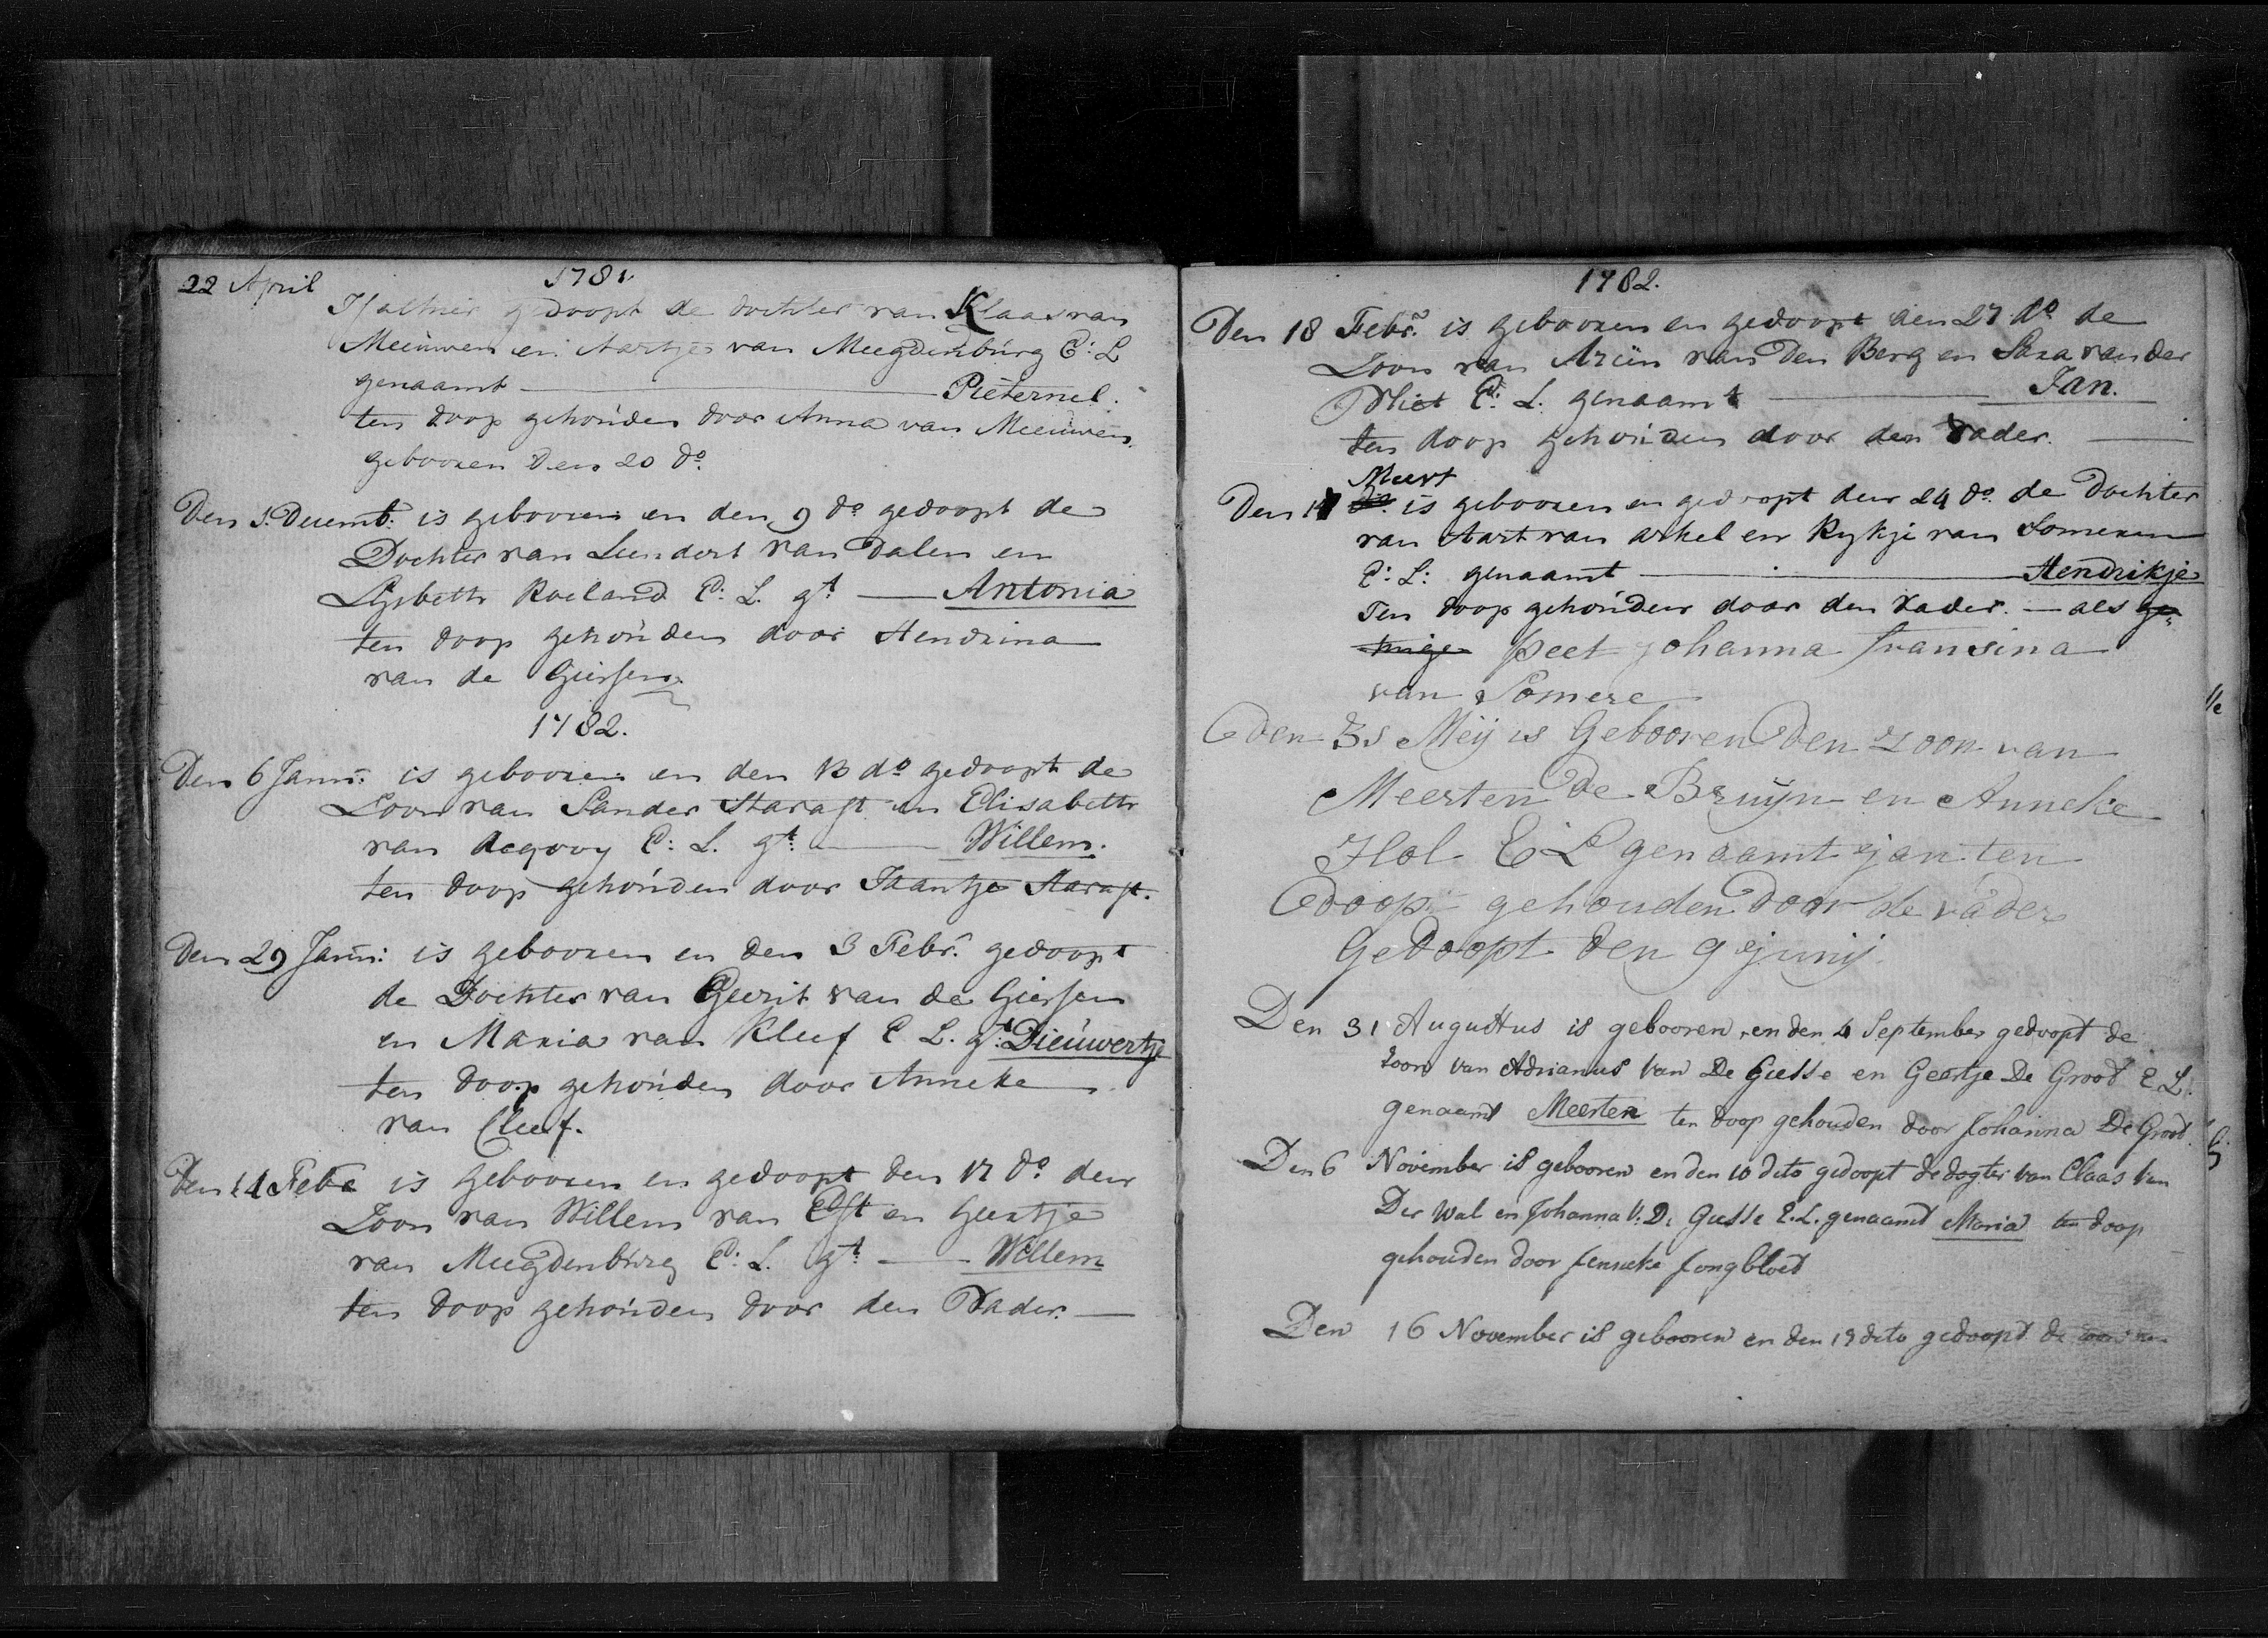 22 April 1781
Is alhier gedoopt de dochter van Klaas van
Meeuwen en Aartje van Meegdenburg E: L
genaamt — Pieternel.
ten doop gehouden door Anna van Meeuwen
gebooren den 20 do
Den 5. Decemb: is gebooren en den 9 do gedoopt de
Dochter van Leendert van Dalen en
Lijsbeth Roeland E: L. gt: — Antonia
ten doop gehouden door Hendrina
van de Giessen.
1782.
Den 6 Janu: is gebooren en den 13 do gedoopt de
Zoon van Sander Staraft en Elisabeth
van E: L. gt: — Willem.
ten doop gehouden door Jaantje Staraft.
Den 29 Janu: is gebooren en den 3 Febr. gedoopt
de Dochter van Geerit van de Giessen
en Maria van Kleef E L. gt: Dieuwertje
ten doop gehouden door Anneke
van Cleef.
Den 14 Febr is gebooren en gedoopt den 17 do den
Zoon van Willem van Elst en Geertje
van Meegdenburg E: L. gt: — Willem
ten doop gehouden door den Vader. —
1782.
Den 18 Febr. is gebooren en gedoopt den 27 do de
Zoon van Ariin van den Berg en Sara van der
Vliet E: L. genaamt — Jan.
ten doop gehouden door den Vader. —
Meert
Den 17 do. is gebooren en gedoopt den 24 do. de Dochter
van Aart van Arkel en Rykje van Someren
E: L: genaamt — Hendrikje
Ten doop gehouden door den Vader. — als ge„
tuige peet johanna fransina
van Somere
den 31 Meij is Gebooren Den zoon van
Meerten De Bruijn en Anneke
Hol E L genaamt ejan ten
doop gehouden Door de vader
Gedoopt den 9 ejunij.
Den 31 Augustus is gebooren, en den 4 September gedoopt de
zoon van Adrianus Van De Giesse en Geertje De Groot E L.
genaamt Meerten ten doop gehouden door Johanna De Groot.
Den 6 November is gebooren en den 10 dito gedoopt de dogter van Claas Van
Der Wal en Johanna V: De Giesse E. L. genaamt Maria ten doop
gehouden door Jenneke Jongbloet
Den 16 November is gebooren en den 19 dito gedoopt de zoon van